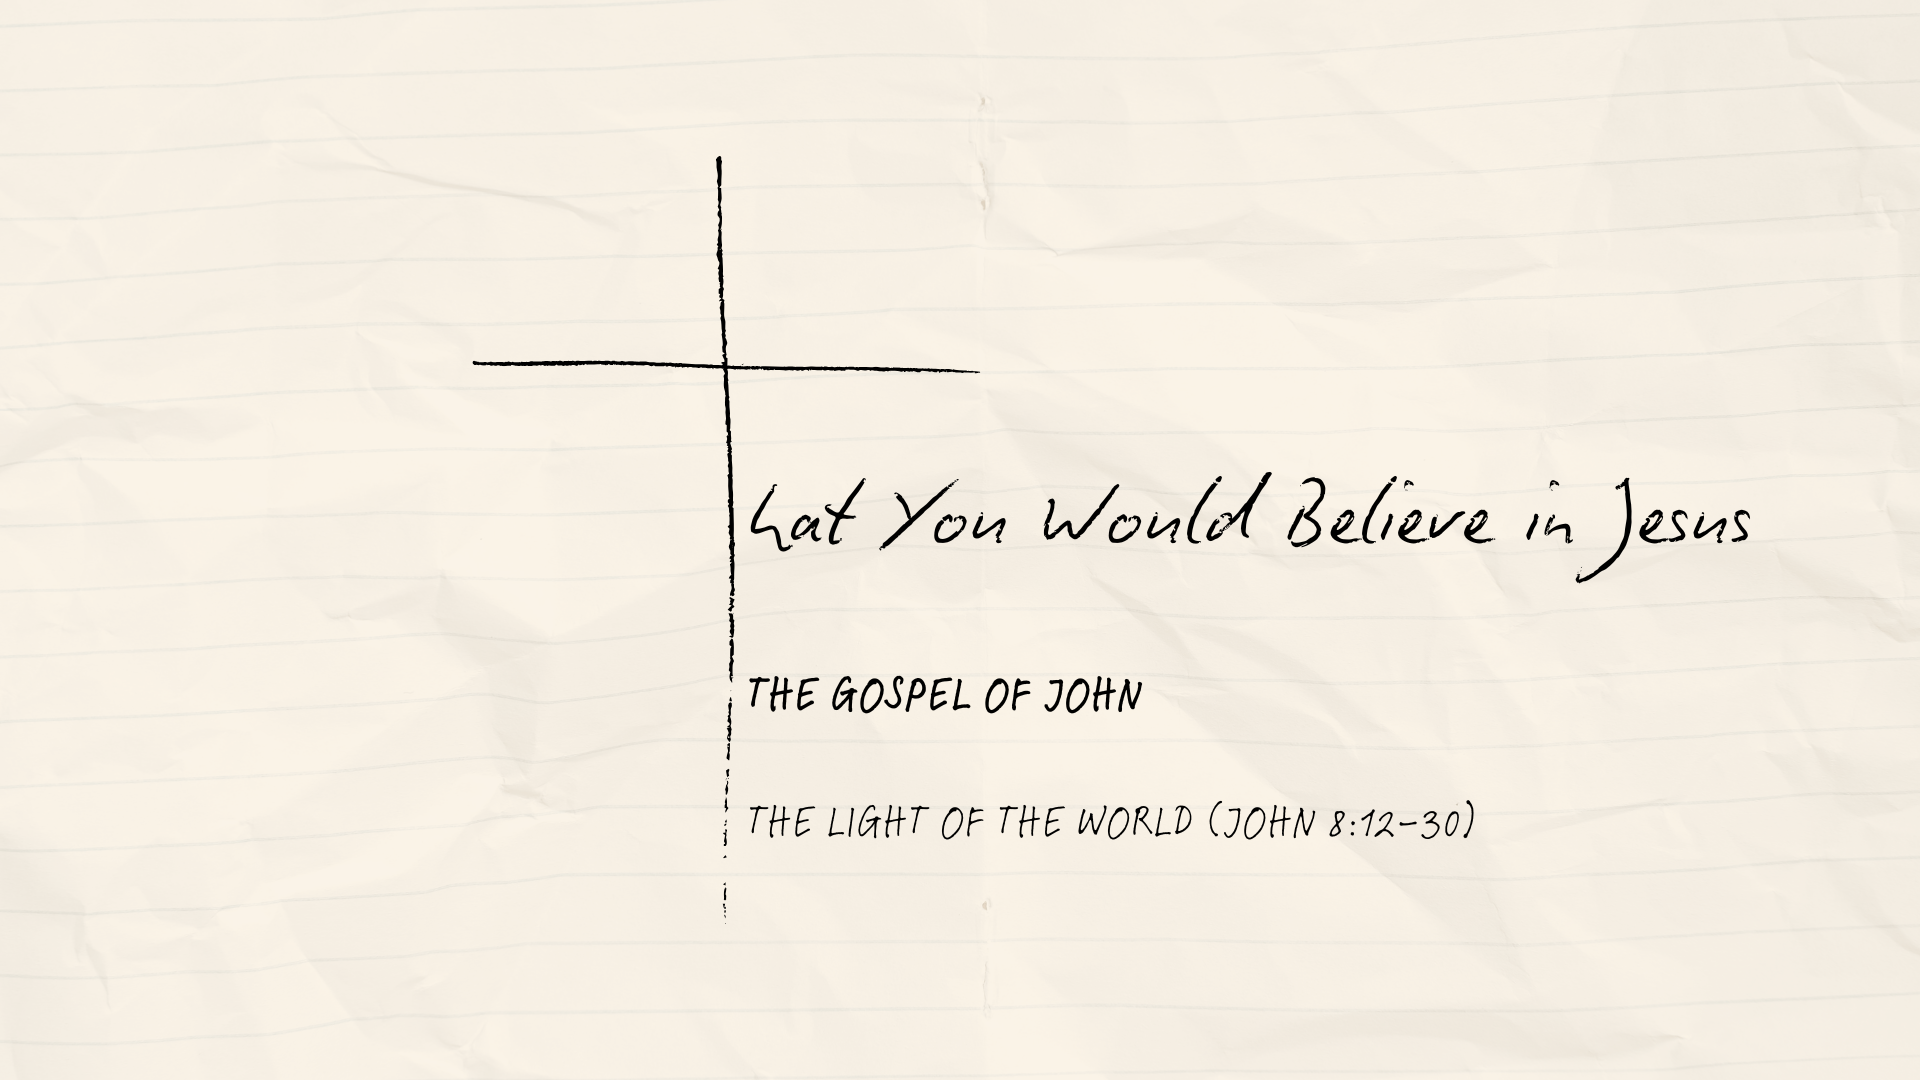 That You Would Believe in Jesus
THE GOSPEL OF JOHN
THE LIGHT OF THE WORLD (JOHN 8:12-30)